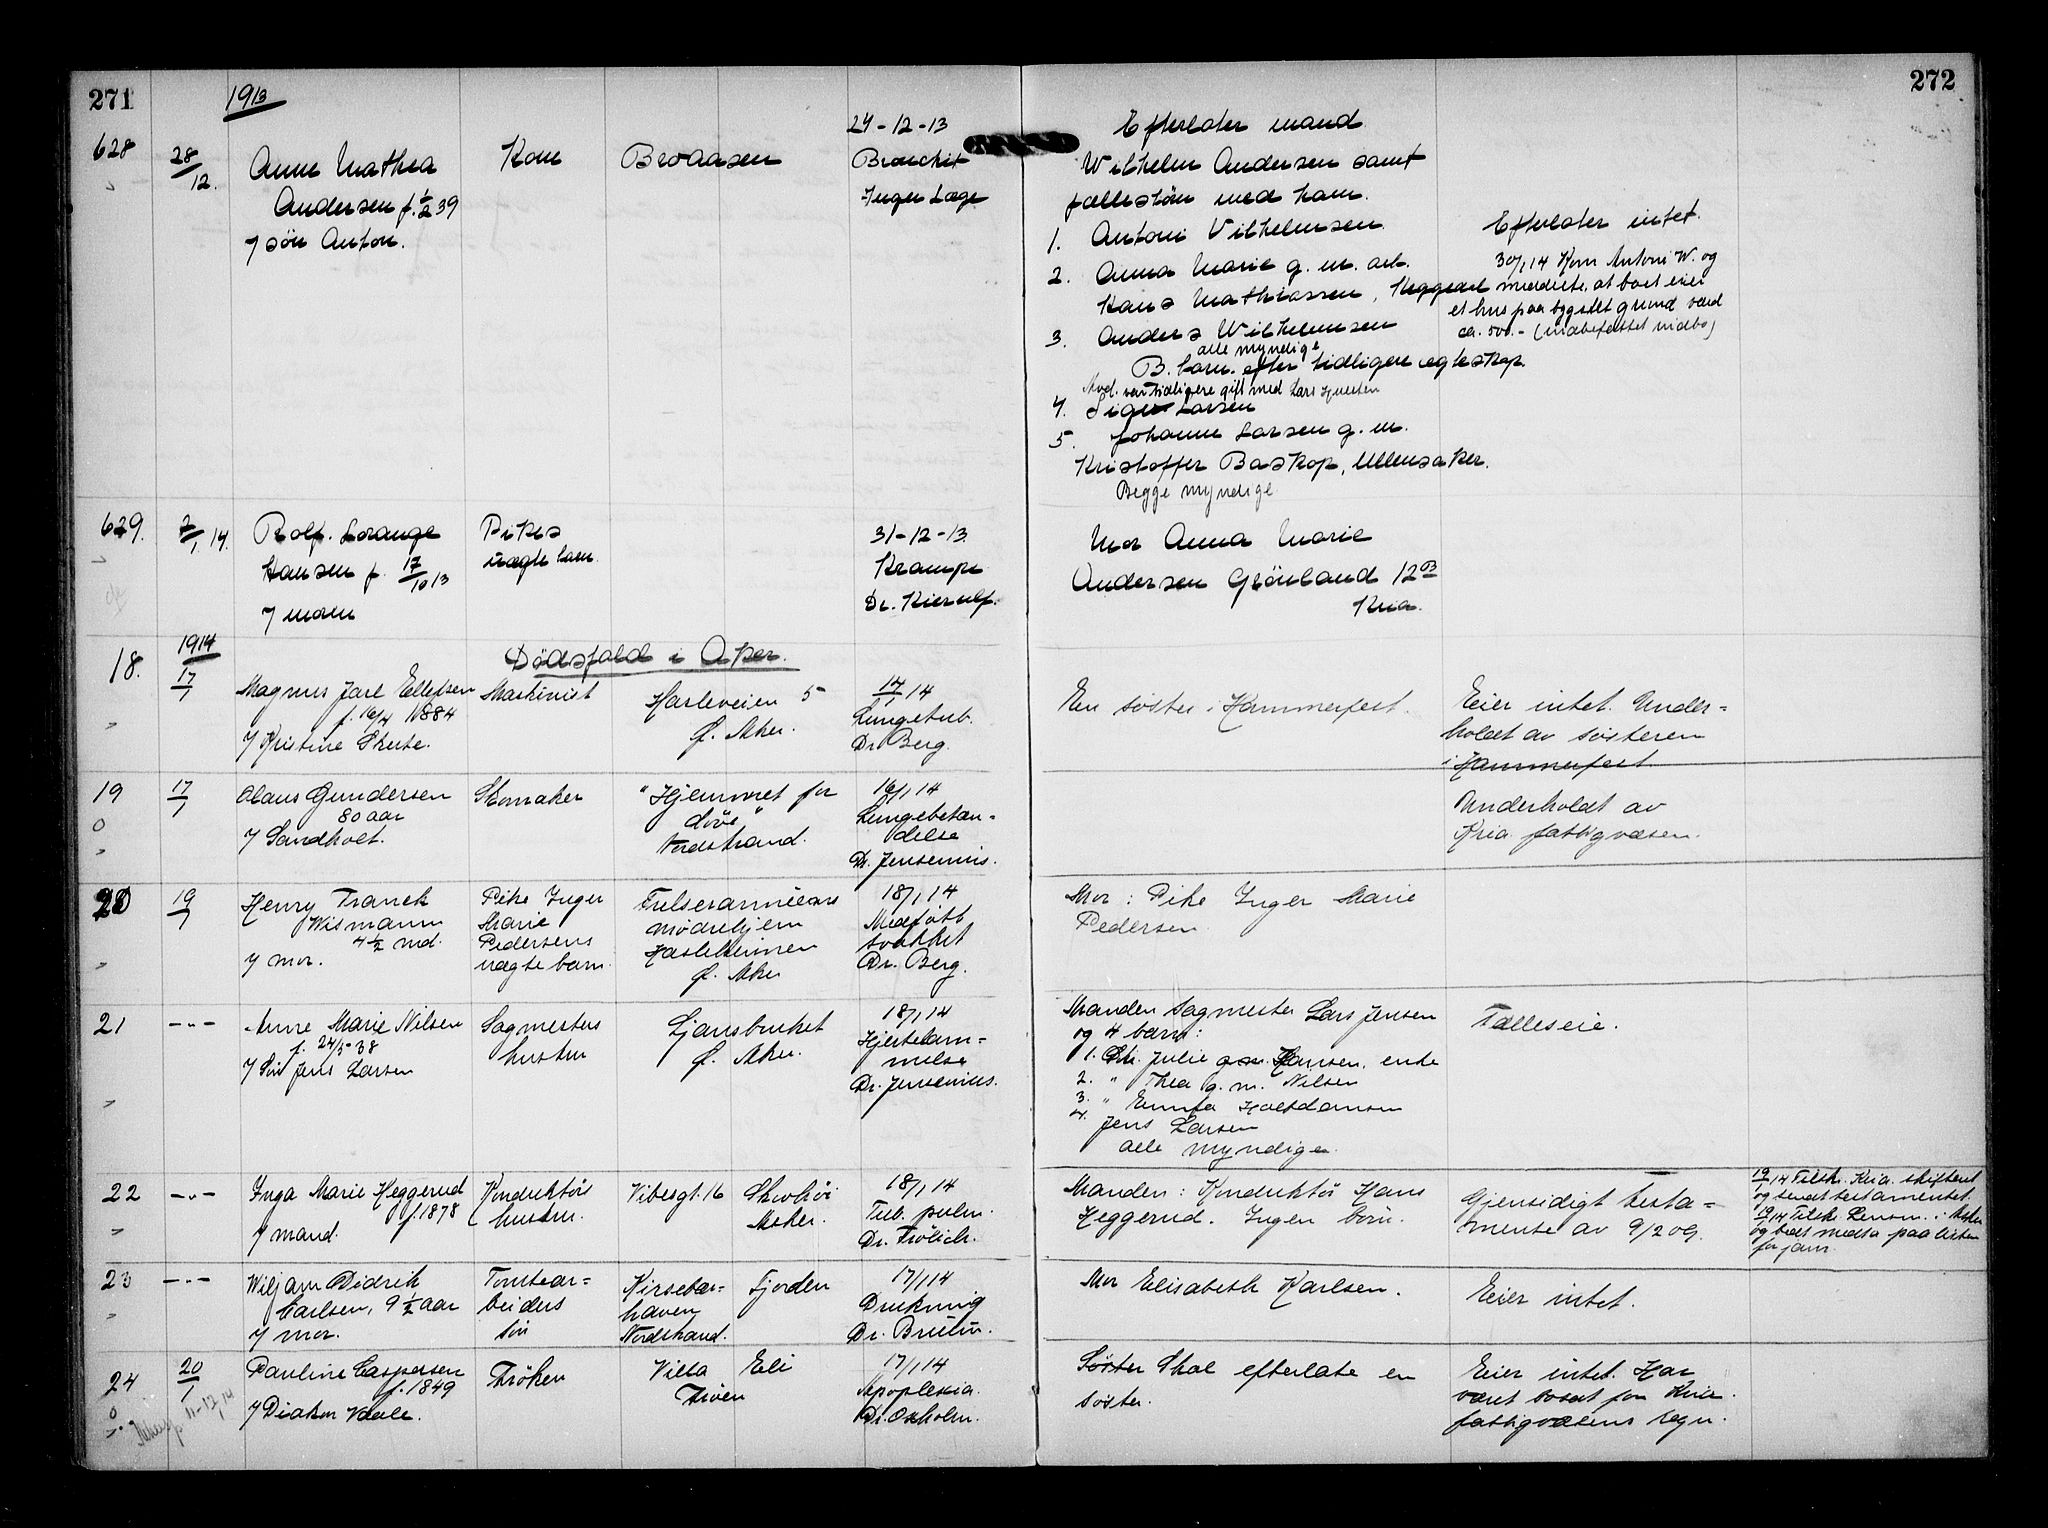 271
272
1913
628
28/12.
Anne Mathea
Andersen f. 1/2 39
7 sön Anton.
Kone
Broaasen
24-12-13
Bronchit
Ingen Læge
Efterlater mand
Wilhelm Andersen samt
fællesbörn med ham.
1. Antoni Vilhelmsen
2. Anna Marie g. m. arb.
Hans Mathiassen,
3. Anders Wilhelmsen
alle myndige
B. barn efter tidligere egteskap.
Avd. var tidligere gift med Lars
4. Larsen
5. Johanne Larsen g. m.
Kristoffer Baskop, Ullensaker.
Begge myndige
Efterlater intet.
30/1 14 Kom Antoni W. og
meddelte, at boet eier
et hus paa bygslet grund værd
ca. 500.- (
629.
2/1. 14.
Rolf. Lorange
Hansen f. 17/10 13
7 moren
Pikes
uægte barn
31-12-13
Krampe
Dr. Kierulf.
Mor Anna Marie
Andersen Grönland 12 B
Kria.
1914
Dödsfald i Aker.
18.
17/1
Magnus Jarl Ellefsen
f. 16/4 1884
7 Kristine Skute.
Maskinist
Hasleveien 5
Ø. Aker.
14/1 14
Lungetub.
Dr. Berg.
En söster i Hammerfest.
Eier intet. Under=
holdt av sösteren
i Hammerfest
19
17/1
Olaus Gundersen
80 aar
7 Sandholt.
Skomaker
"Hjemmet for
döve"
Nordstrand.
16/1 14
Lungebetæn-
delse
Dr. Jensenius.
Underholdt av
Kria fattigvæsen.
20
19/1
Henry Franck
Wismann
4 1/2 md.
7 mor.
Pike Inger
Marie
Pedersens
uægte barn
Frelserarméens
mödrehjem
Hasleheimen
Ø. Aker
18/1 14
Medfött
svakhet
Dr. Berg.
Mor: Pike Inger Marie
Pedersen.
21
-"-
Anne Marie Nilsen
f. 24/5-38
7 Sön Jens Larsen
Sagmesters
hustru
Ljansbruket
Ø. Aker.
18/1 14
Hjertelam=
melse
Dr. Jensenius.
Manden Sagmester Lars Jensen
og 4 barn:
1. Julie Hansen, enke
2. " Thea g. m. Nilsen
3. "
4. Jens Larsen
alle myndige.
Fælleseie.
22
-"-
Inga Marie Heggerud
f. 1878
7 mand.
Konduktörs
hustru.
Vibesgt. 16
Skovhöi
Aker.
18/1 14
Tub. pulm.
Dr. Frölich.
Manden: Konduktör Hans
Heggerud. Ingen börn.
Gjensidigt testa=
mente av 9/2 09.
19/1 14 Tilskr. Kria. skifteret
og sendt testamentet.
19/1 14 Tilskr. Lensm. i Aker
og bedt medta paa listen
for jan.
23
-"-
Wiljam Didrik
Carlsen, 9 1/2 aar
7 mor.
Tomtear=
beiders
sön
Kirsebær=
haven
Nordstrand.
Fjorden
17/1 14
Drukning
Dr. Bruun.
Mor Elisabeth Karlsen.
Eier intet.
24
20/1
Pauline Caspersen
f. 1849
7 Diakon Vaale.
Fröken
Villa Eli
Froen
17/1 14
Apoplexia.
Dr. Oxholm.
Söster Skal efterlate en
söster.
Eier intet. Har
været bosat for Kria.
fattigvæsens regn.
11-12, 14